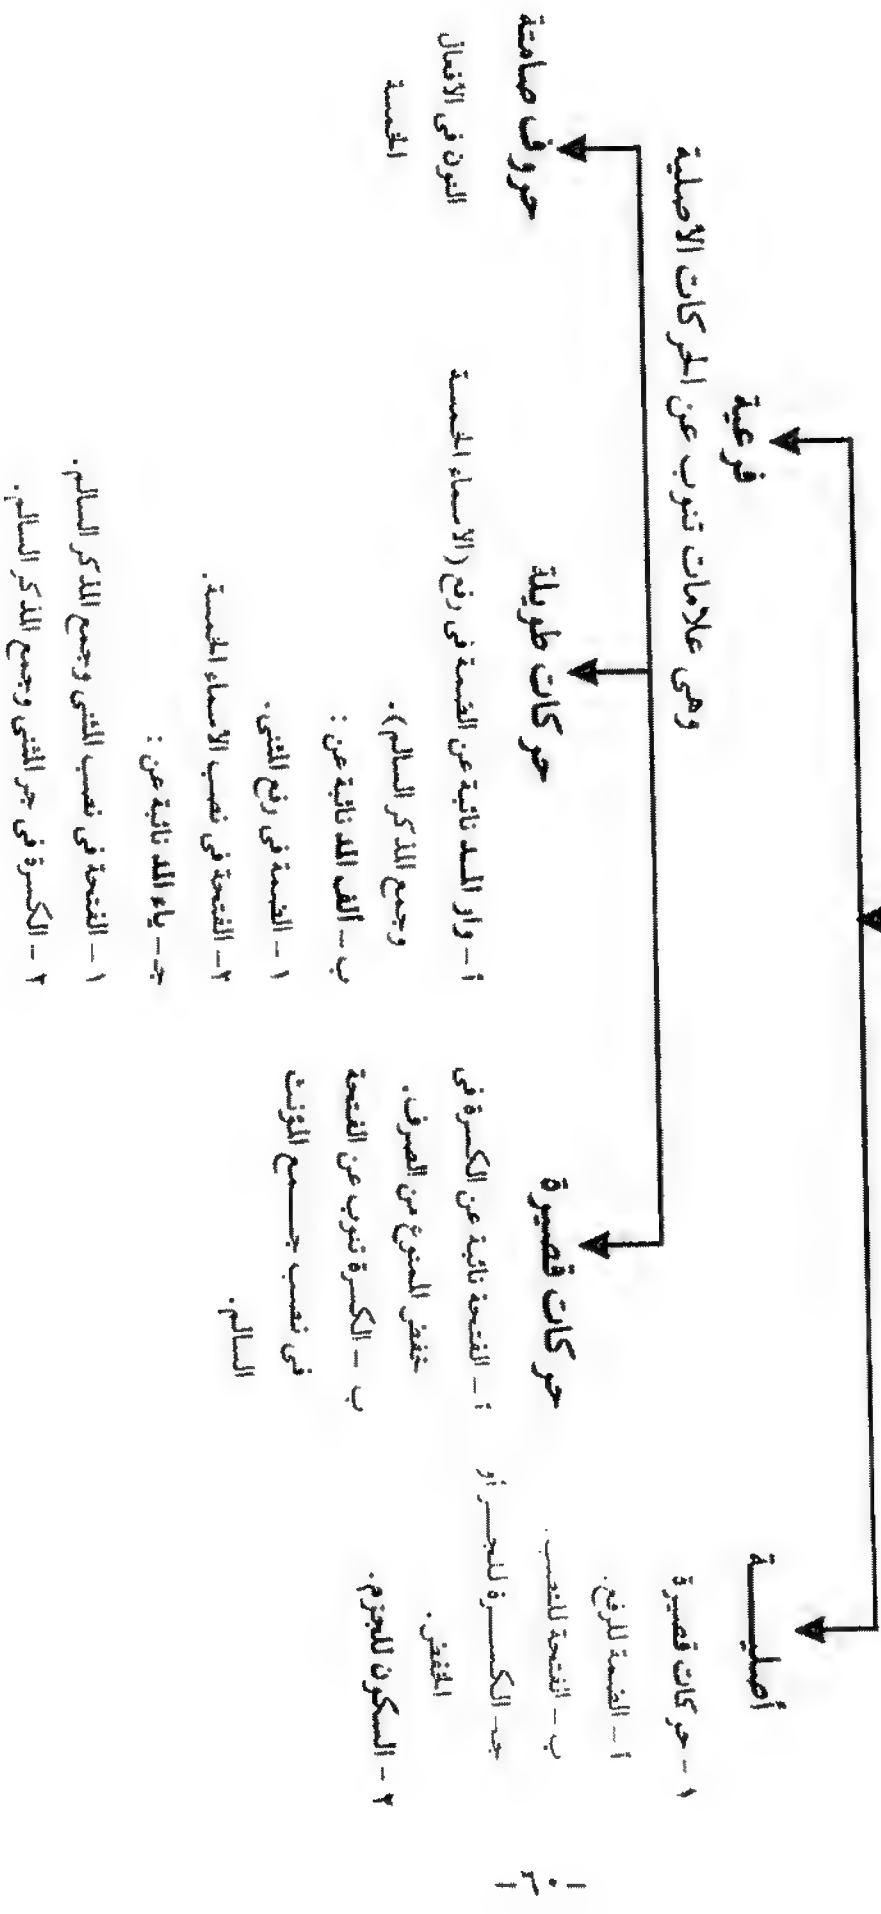 أصليــــــة
١ – حركات قصيرة
أ – الضمة للرفع .
ب – الفتحة للنصب .
جـ- الكســــرة للجــر أو
الخفض .
٢ – السكون للجزم .
فرعية
وهى علامات تنوب عن الحركات الأصلية
حركات قصيرة
أ – الفتحة نائبة عن الكسرة فى
خفض الممنوع من الصرف .
ب – الكسرة تنوب عن الفتحة
فى نصب جـــمع المؤنث
السالم .
حركات طويلة
أ – واو المــد نائبة عن الضمة فى رفع (الأسماء الخمسة
وجمع المذكر السالم) .
ب – ألف المد نائبة عن :
١ – الضمة فى رفع المثنى .
٢ – الفتحة فى نصب الأسماء الخمسة .
جـ – ياء المد نائبة عن :
١ – الفتحة فى نصب المثنى وجمع المذكر السالم .
٢ – الكسرة فى جر المثنى وجمع المذكر السالم .
حروف صامتة
النون فى الأفعال
الخمسة
–٦٠–